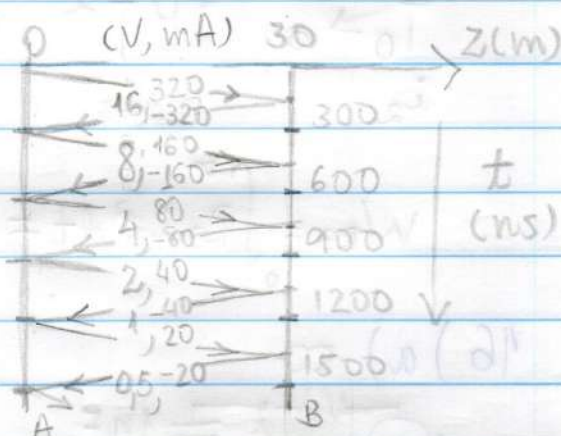 0 (V, mA) 30 Z(m)
16, 320
-320 300
8, 160
-160 600
t
4, 80
-80 900
(ns)
2, 40
1, -40 1200
, 20
0,5, -20 1500
A B